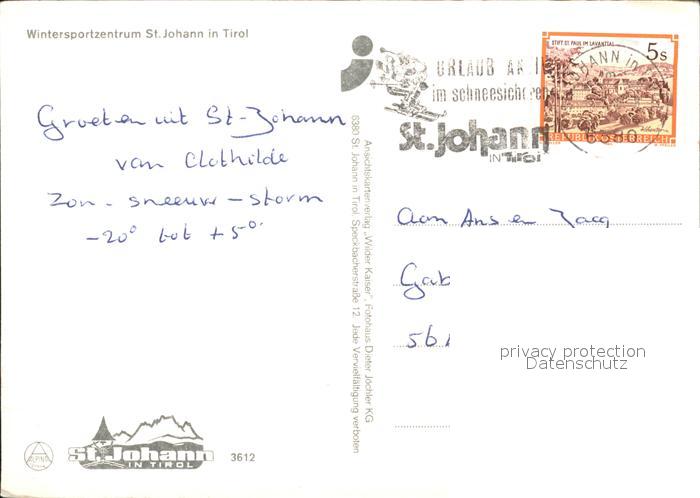 Wintersportzentrum St. Johann in Tirol
Groeten uit St-Johann
van Clothilde
Zon - sneeuw - storm
-20° tot +5°
Ansichtskartenverlag „Wilder Kaiser", Fotohaus Dieter Jöchler KG
6380 St. Johann in Tirol, Speckbacherstraße 12. Jede Vervielfältigung verboten
URLAUB
im schneesicheren
St. Johann
IN TIROL
STIFT ST. PAUL IM LAVANTTAL
5 S
REPUBLIK ÖSTERREICH
JOHANN in
6380
Aan Ans en Jacq
561
privacy protection
Datenschutz
St. Johann
IN TIROL
3612